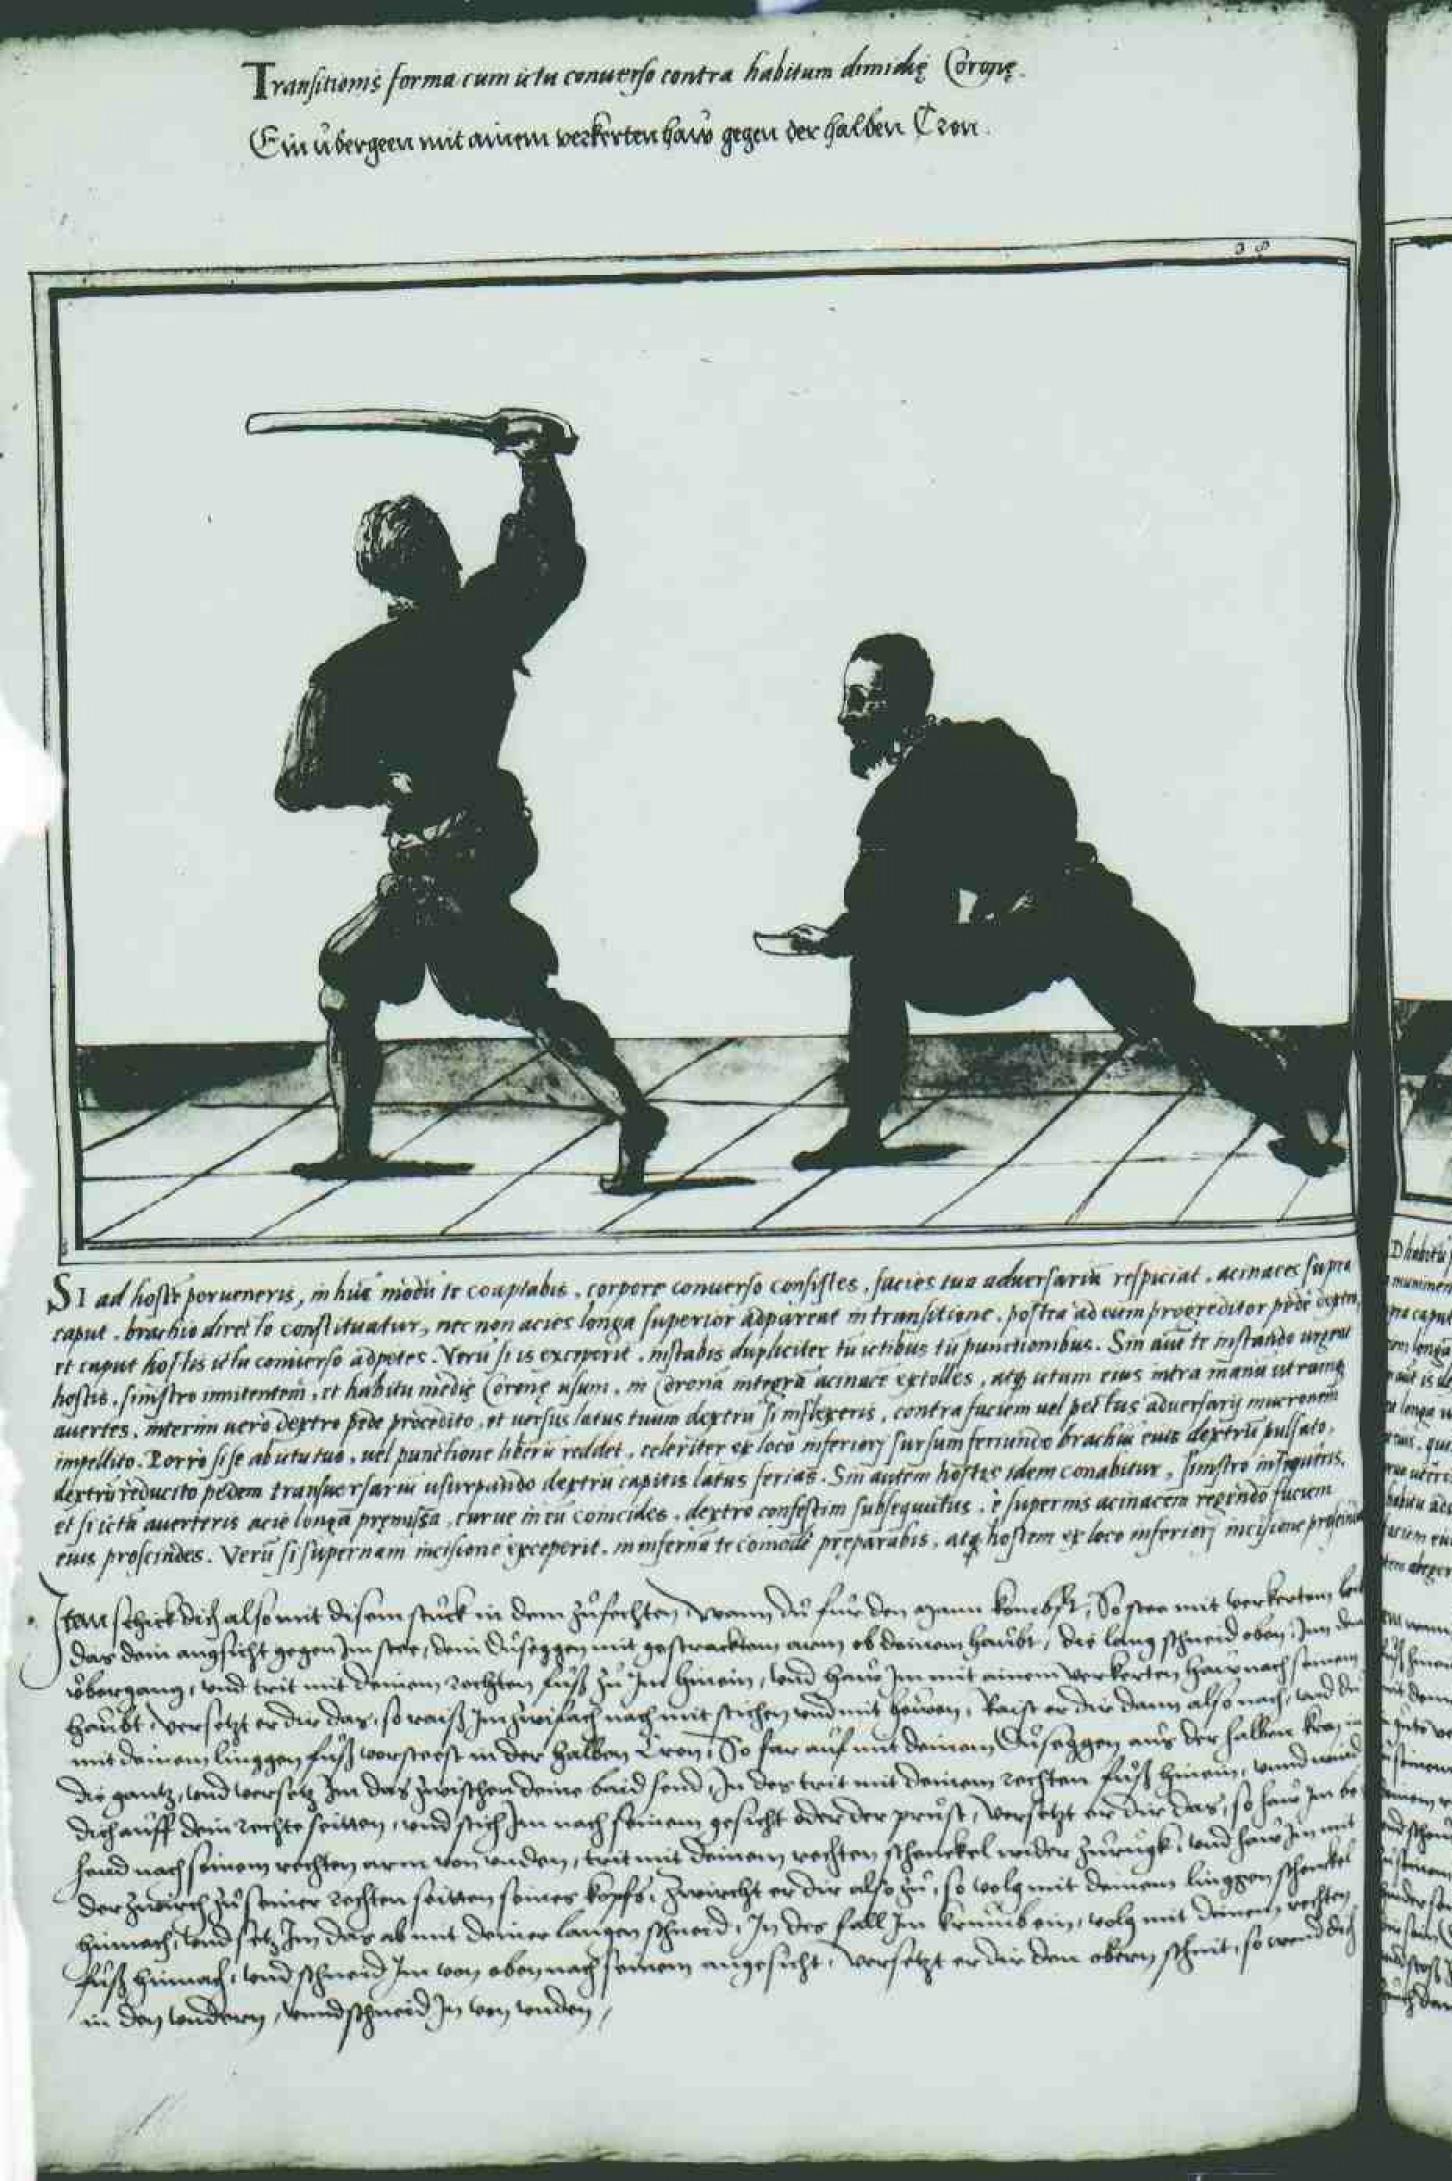 Transitionis forma cum ictu conuerso contra habitum dimidię Coronę.
Ein übergeen mit ainem verkerten haw gegen der halben Cron.
SI ad hostē perueneris, in hūc modū te coaptabis, corpore conuerso consistes, facies tua aduersariū respiciat, acinaces supra
caput, brachio directo constituatur, nec non acies longa superior adpareat in transitione, postea ad eum progreditor pede dextro,
et caput hostis ictu conuerso adpetes. Verū si is exceperit, instabis dupliciter tū ictibus tū punctionibus. Sin aūt te instando urgeat
hostis, sinistro innitentem, et habitu medię Coronę usum, in Coronā integrā acinacē extolles, atq ictum eius intra manū utramq
auertes, interim uero dextro pede procedito, et uersus latus tuum dextrū si inflexeris, contra faciem uel pectus aduersarij mucronem
impellito. Porro si se ab ictu tuo, uel punctione liberū reddet, celeriter ex loco inferiorj sursum feriundo brachiū eius dextrū pulsato,
dextrū reducito pedem transuersariū usurpando dextrū capitis latus ferias. Sin autem hostis idem conabitur, sinistro insequitris,
et si ictū auerteris acie longa pręmissa, curue in eū concides, dextro confestim subsequutus, è supernis acinacem regendo faciem
eius proscindes. Verū si supernam incisionē exceperit, in infernā te cōmodè pręparabis, atq hostem ex loco inferiorj incisione proscindes
Item schick dich also mit disem stuck in dem zufechten, Wann du für den mann kombst, So stee mit verkertem
das dein angsicht gegen Im stee, dein Duseggen mit gestracktem arm ob deinem haubt, die lang schneid oben, Im
übergang, vnd trit mit deinem rechten fuß zu Im hinein, vnd haw Im mit ainem verkerten haw nach seinem
haubt, versetzt er dir das, so raiß Im zwifach nach mit stichen vnd mit hewen, Raist er dir dann also nach, vnd du
mit deinem linggen fuß vorsteest in der halben Cron, So far auf mit deinem Duseggen aus der halben Kron in
die gantz, vnd versetz Im das zwischen deine baid hend, In des trit mit deinem rechten fuß hinein, vnnd wend
dich auff dein rechte seitten, vnd stich Im nach seinem gesicht oder der prust, versetzt er dir das, so haw Im be
hend nach seinem rechten arm von vnden, trit mit deinem rechten schenckel wider zuruck, vnd haw Im mit
der zwirch zu seiner rechten seitten seines kopfs, zwircht er dir also zu, so volg mit deinem linggen schenckel
hinnach, vnd setz Im das ab mit deiner langen schneid, In des fall Im krumb ein, volg mit deinem rechten
fuß hinnach, vnd schneid Im von oben nach seinem angesicht, versetzt er dir den obern schnit, so wend dich
in den vndern, vnnd schneid In von vnden,